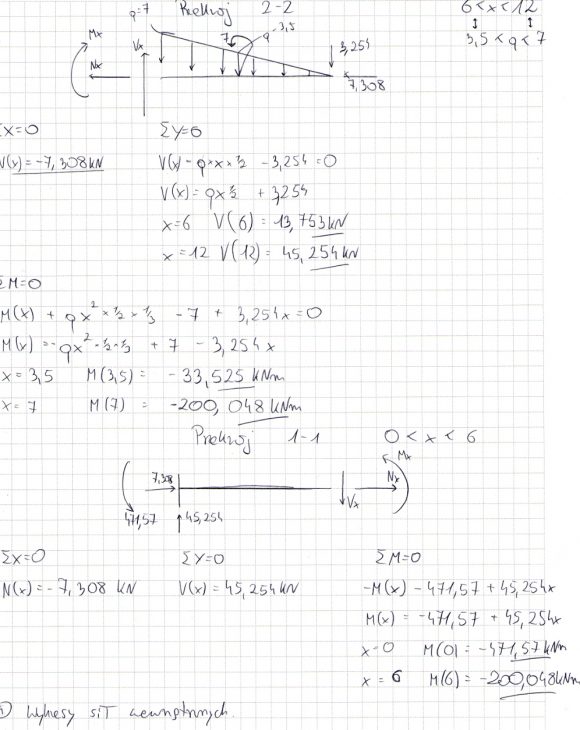 q=7 Przekrój 2-2 6<x<12
3,5<q<7
Mx Vx 7 q=3,5 3,254
Nx 7,308
ΣX=0 ΣY=0
V(x)=-7,308kN V(x)-q×x×½ -3,254=0
V(x)=qx½ +3,254
x=6 V(6)=13,753kN
x=12 V(12)=45,254kN
ΣM=0
M(x) + qx²×½×⅓ -7 + 3,254x=0
M(x)=-qx²·½·⅓ +7 -3,254x
x=3,5 M(3,5)= -33,525 kNm
x=7 M(7) = -200,048 kNm
Przekrój 1-1 0<x<6
7,308 Nx Mx
471,57 45,254 Vx
ΣX=0 ΣY=0 ΣM=0
N(x)=-7,308 kN V(x)=45,254kN -M(x)-471,57+45,254x
M(x)=-471,57+45,254x
x=0 M(0)=-471,57kNm
x=6 M(6)=-200,048kNm
Wykresy sił wewnętrznych.